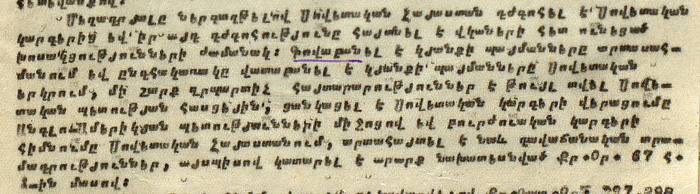 հետևանքով։
Մեղադրյալը ներգաղթելով Սովետական Հայաստան դժգոհել է Սովետական
կարգերից եվ իր այդ դժգոհությունը հայտնել է վկաների հետ ունեցած
խոսակցությունների ժամանակ։ Գովաբանել է կյանքի պայմանները արտասահ-
մանում եվ ընդհակառակը վատաբանել է կյանքի պայմանները Սովետական
երկրում, մի շարք զրպարտիչ հայտարարություններ է թույլ տվել Սովե-
տական պետության հասցեյին, ցանկացել է Սովետական կարգերի վերացումը
Անգլո-Ամերիկյան պետությունների միջոցով եվ բուրժուական կարգերի
հիմնումը Սովետական Հայաստանում, արտահայտել է նաև դավաճանական տրա-
մադրություններ, այսպիսով կատարել է արարք նախատեսված Քր.Օր. 67 հ.
1-ին մասով։
297-298